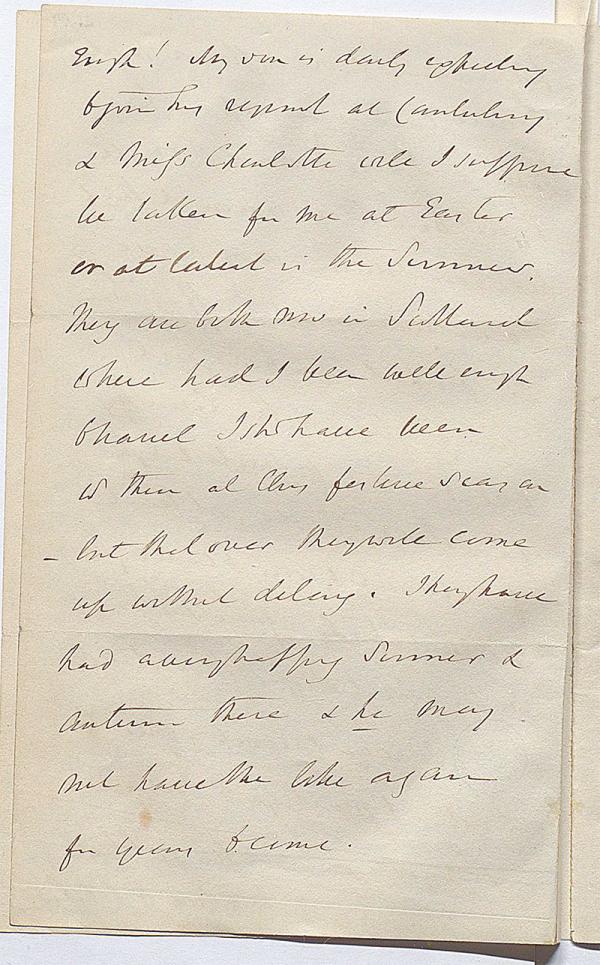 Enough! My son is daily expecting
to join his regiment at Canterbury
& Miss Charlotte will I suppose
be taken from me at Easter
or at latest in the Summer.
They are both now in Scotland
where had I been well enough
to travel I shd have been
w them at this festive season
- but that over they will come
up without delay. They have
had a very happy Summer &
Autumn there & he may
not have the like again
for years to come.